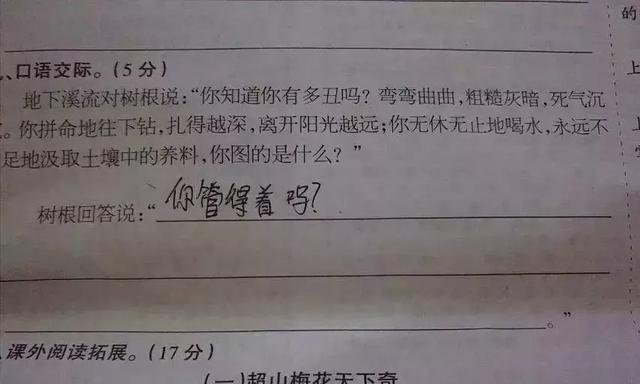 的
、口语交际。(5分)
上
地下溪流对树根说:“你知道你有多丑吗?弯弯曲曲,粗糙灰暗,死气沉
。你拼命地往下钻,扎得越深,离开阳光越远;你无休无止地喝水,永远不
上
足地汲取土壤中的养料,你图的是什么?”
树根回答说:“你管得着吗?
。”
课外阅读拓展。(17分)
(一)超山梅花天下奇